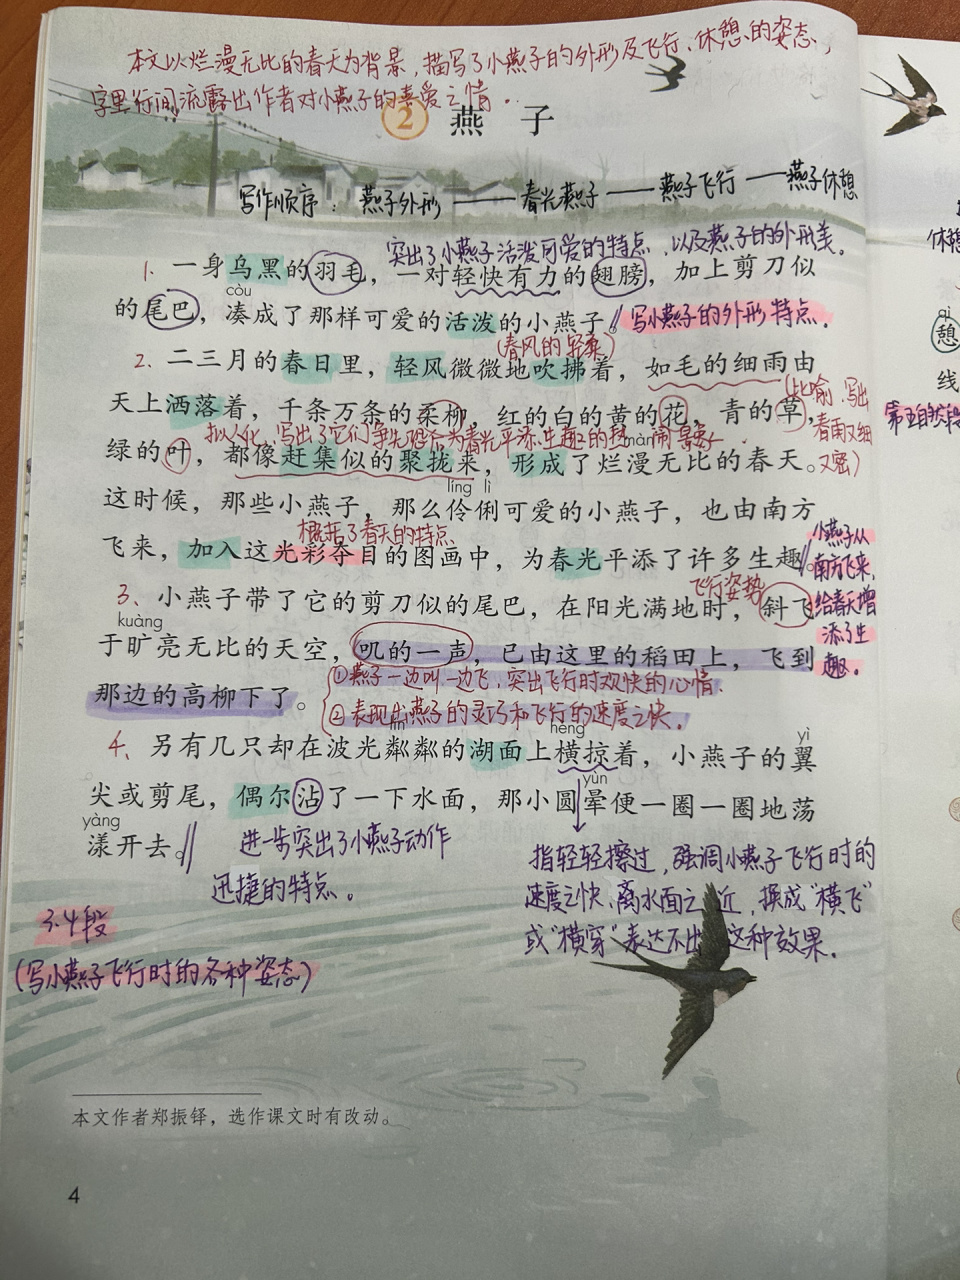 本文以烂漫无比的春天为背景，描写了小燕子的外形及飞行、休憩的姿态，
字里行间流露出作者对小燕子的喜爱之情。
2 燕子
写作顺序：燕子外形——春光燕子——燕子飞行——燕子休憩
突出了小燕子活泼可爱的特点，以及燕子的外形美。
1. 一身乌黑的羽毛，一对轻快有力的翅膀，加上剪刀似
còu
的尾巴，凑成了那样可爱的活泼的小燕子。
写小燕子的外形特点.
(春风的轻柔)
2. 二三月的春日里，轻风微微地吹拂着，如毛的细雨由
天上洒落着，千条万条的柔柳，红的白的黄的花，青的草，
(比喻，写出
春雨又细
又密)
拟人化，写出了它们争先恐后为春光平添生趣的热闹景象.
làn màn
绿的叶，都像赶集似的聚拢来，形成了烂漫无比的春天。
líng lì
这时候，那些小燕子，那么伶俐可爱的小燕子，也由南方
概括了春天的特点
飞来，加入这光彩夺目的图画中，为春光平添了许多生趣。
小燕子从
南方飞来，
给春天增
添了生
趣.
飞行姿势
3、小燕子带了它的剪刀似的尾巴，在阳光满地时，斜飞
kuàng
于旷亮无比的天空，叽的一声，已由这里的稻田上，飞到
那边的高柳下了。
①燕子一边叫一边飞，突出飞行时欢快的心情.
②表现出燕子的灵巧和飞行的速度之快.
lín héng yì
4. 另有几只却在波光粼粼的湖面上横掠着，小燕子的翼
yùn
尖或剪尾，偶尔沾了一下水面，那小圆晕便一圈一圈地荡
yàng
漾开去。
进一步突出了小燕子动作
迅捷的特点。
指轻轻擦过，强调小燕子飞行时的
速度之快、离水面之近，换成“横飞”
或“横穿”表达不出这种效果.
3、4段
(写小燕子飞行时的各种姿态)
本文作者郑振铎，选作课文时有改动。
4
休憩
qì
憩
线
第五自然段